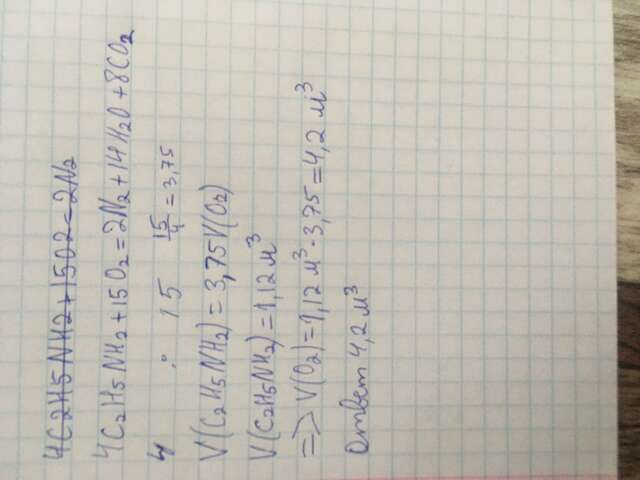 4C2H5NH2+15O2=2N2
4C₂H₅NH₂+15O₂=2N₂+14H₂O+8CO₂
4 : 15 15/4=3,75
V(C₂H₅NH₂)=3,75V(O₂)
V(C₂H₅NH₂)=1,12м³
=>V(O₂)=1,12м³·3,75=4,2м³
Ответ 4,2м³